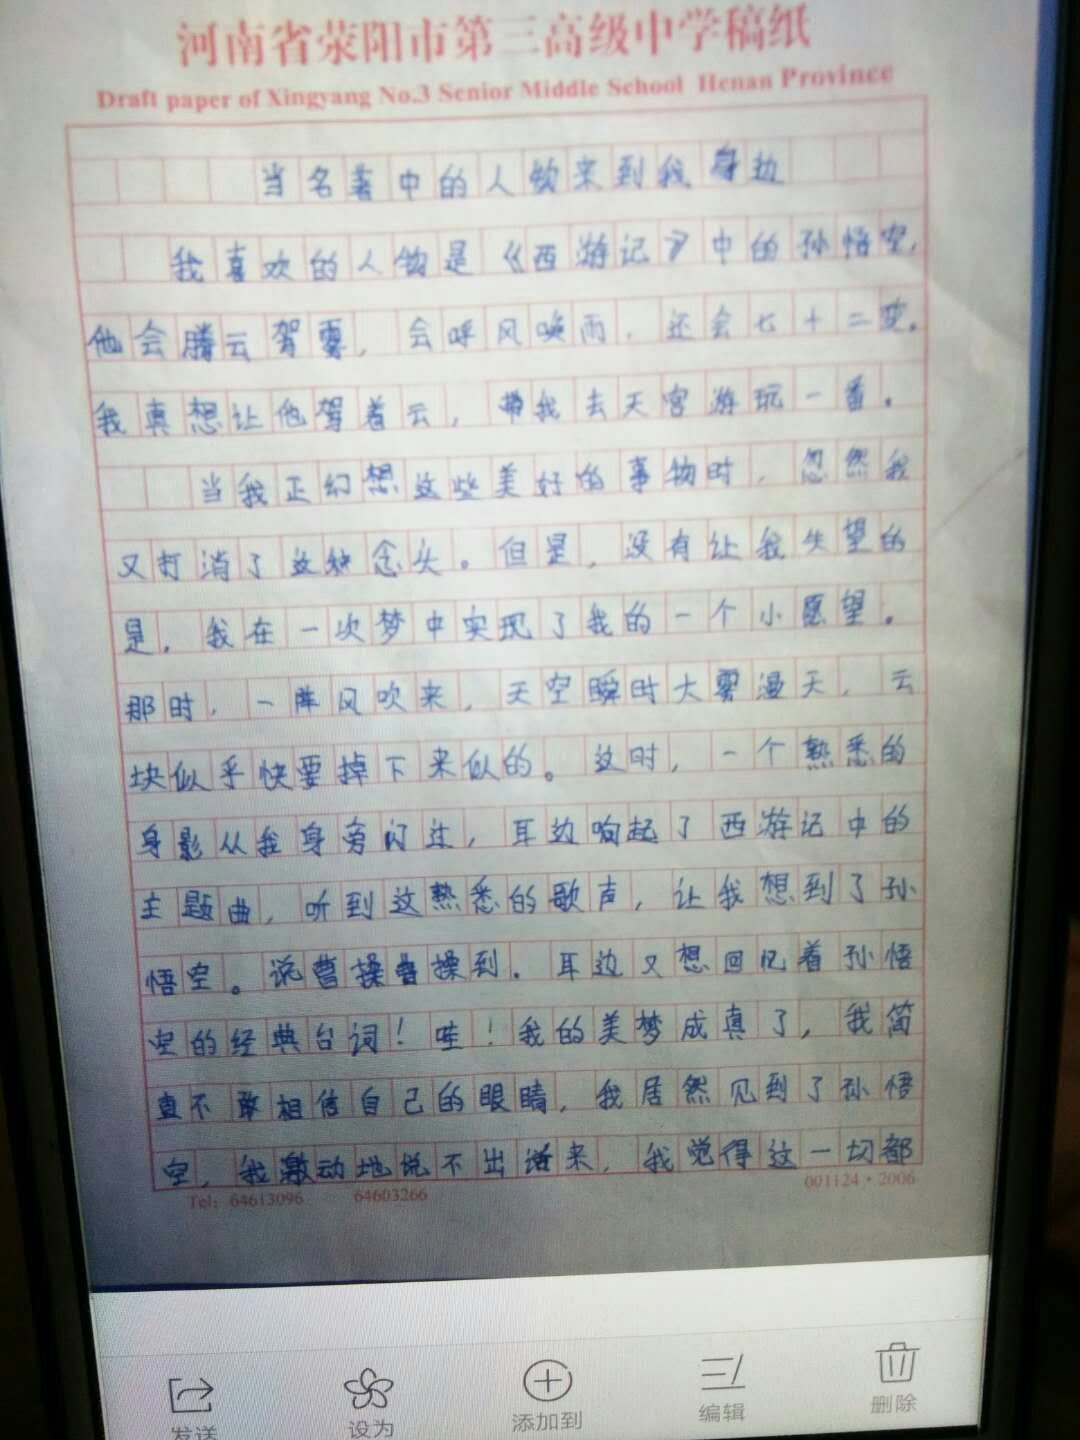 河南省荥阳市第三高级中学稿纸
Draft paper of Xingyang No.3 Senior Middle School Henan Province
当名著中的人物来到我身边
我喜欢的人物是《西游记》中的孙悟空,
他会腾云驾雾,会呼风唤雨,还会七十二变。
我真想让他驾着云,带我去天宫游玩一番。
当我正幻想这些美好的事物时,忽然我
又打消了这种念头。但是,没有让我失望的
是,我在一次梦中实现了我的一个小愿望。
那时,一阵风吹来,天空瞬时大雾漫天,云
块似乎快要掉下来似的。这时,一个熟悉的
身影从我身旁闪过,耳边响起了西游记中的
主题曲,听到这熟悉的歌声,让我想到了孙
悟空。说曹操曹操到,耳边又想回忆着孙悟
空的经典台词!哇!我的美梦成真了,我简
直不敢相信自己的眼睛,我居然见到了孙悟
空,我激动地说不出话来,我觉得这一切都
Tel: 64613096 64603266
001124·2006
发送
设为
添加到
编辑
删除